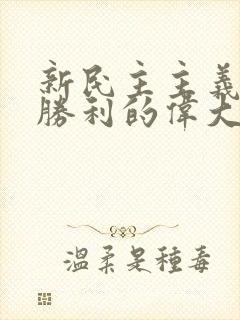 新民主主義
勝利的偉大
溫柔是種毒